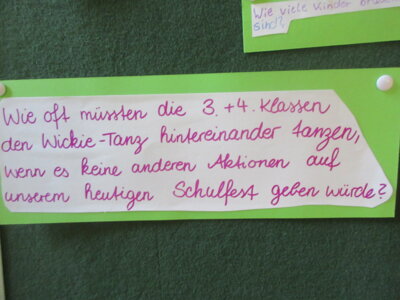 Wie viele Kinder
sind?
Wie oft müssten die 3.+4. Klassen
den Wickie-Tanz hintereinander tanzen,
wenn es keine anderen Aktionen auf
unserem heutigen Schulfest geben würde?